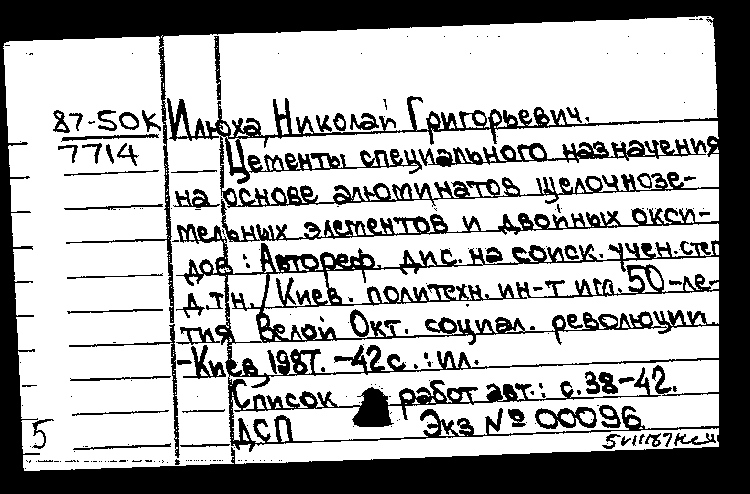 87-50К Илюха, Николай Григорьевич.
7714
Цементы специального назначения
на основе алюминатов щелочнозе-
мельных элементов и двойных окси-
дов : Автореф. дис. на соиск. учен. степ
д.т.н. / Киев. политехн. ин-т им. 50-ле-
тия Велой Окт. социал. революции.
-Киев, 1987. -42с. : ил.
Список работ авт.: с.38-42.
ДСП Экз № 00096
5